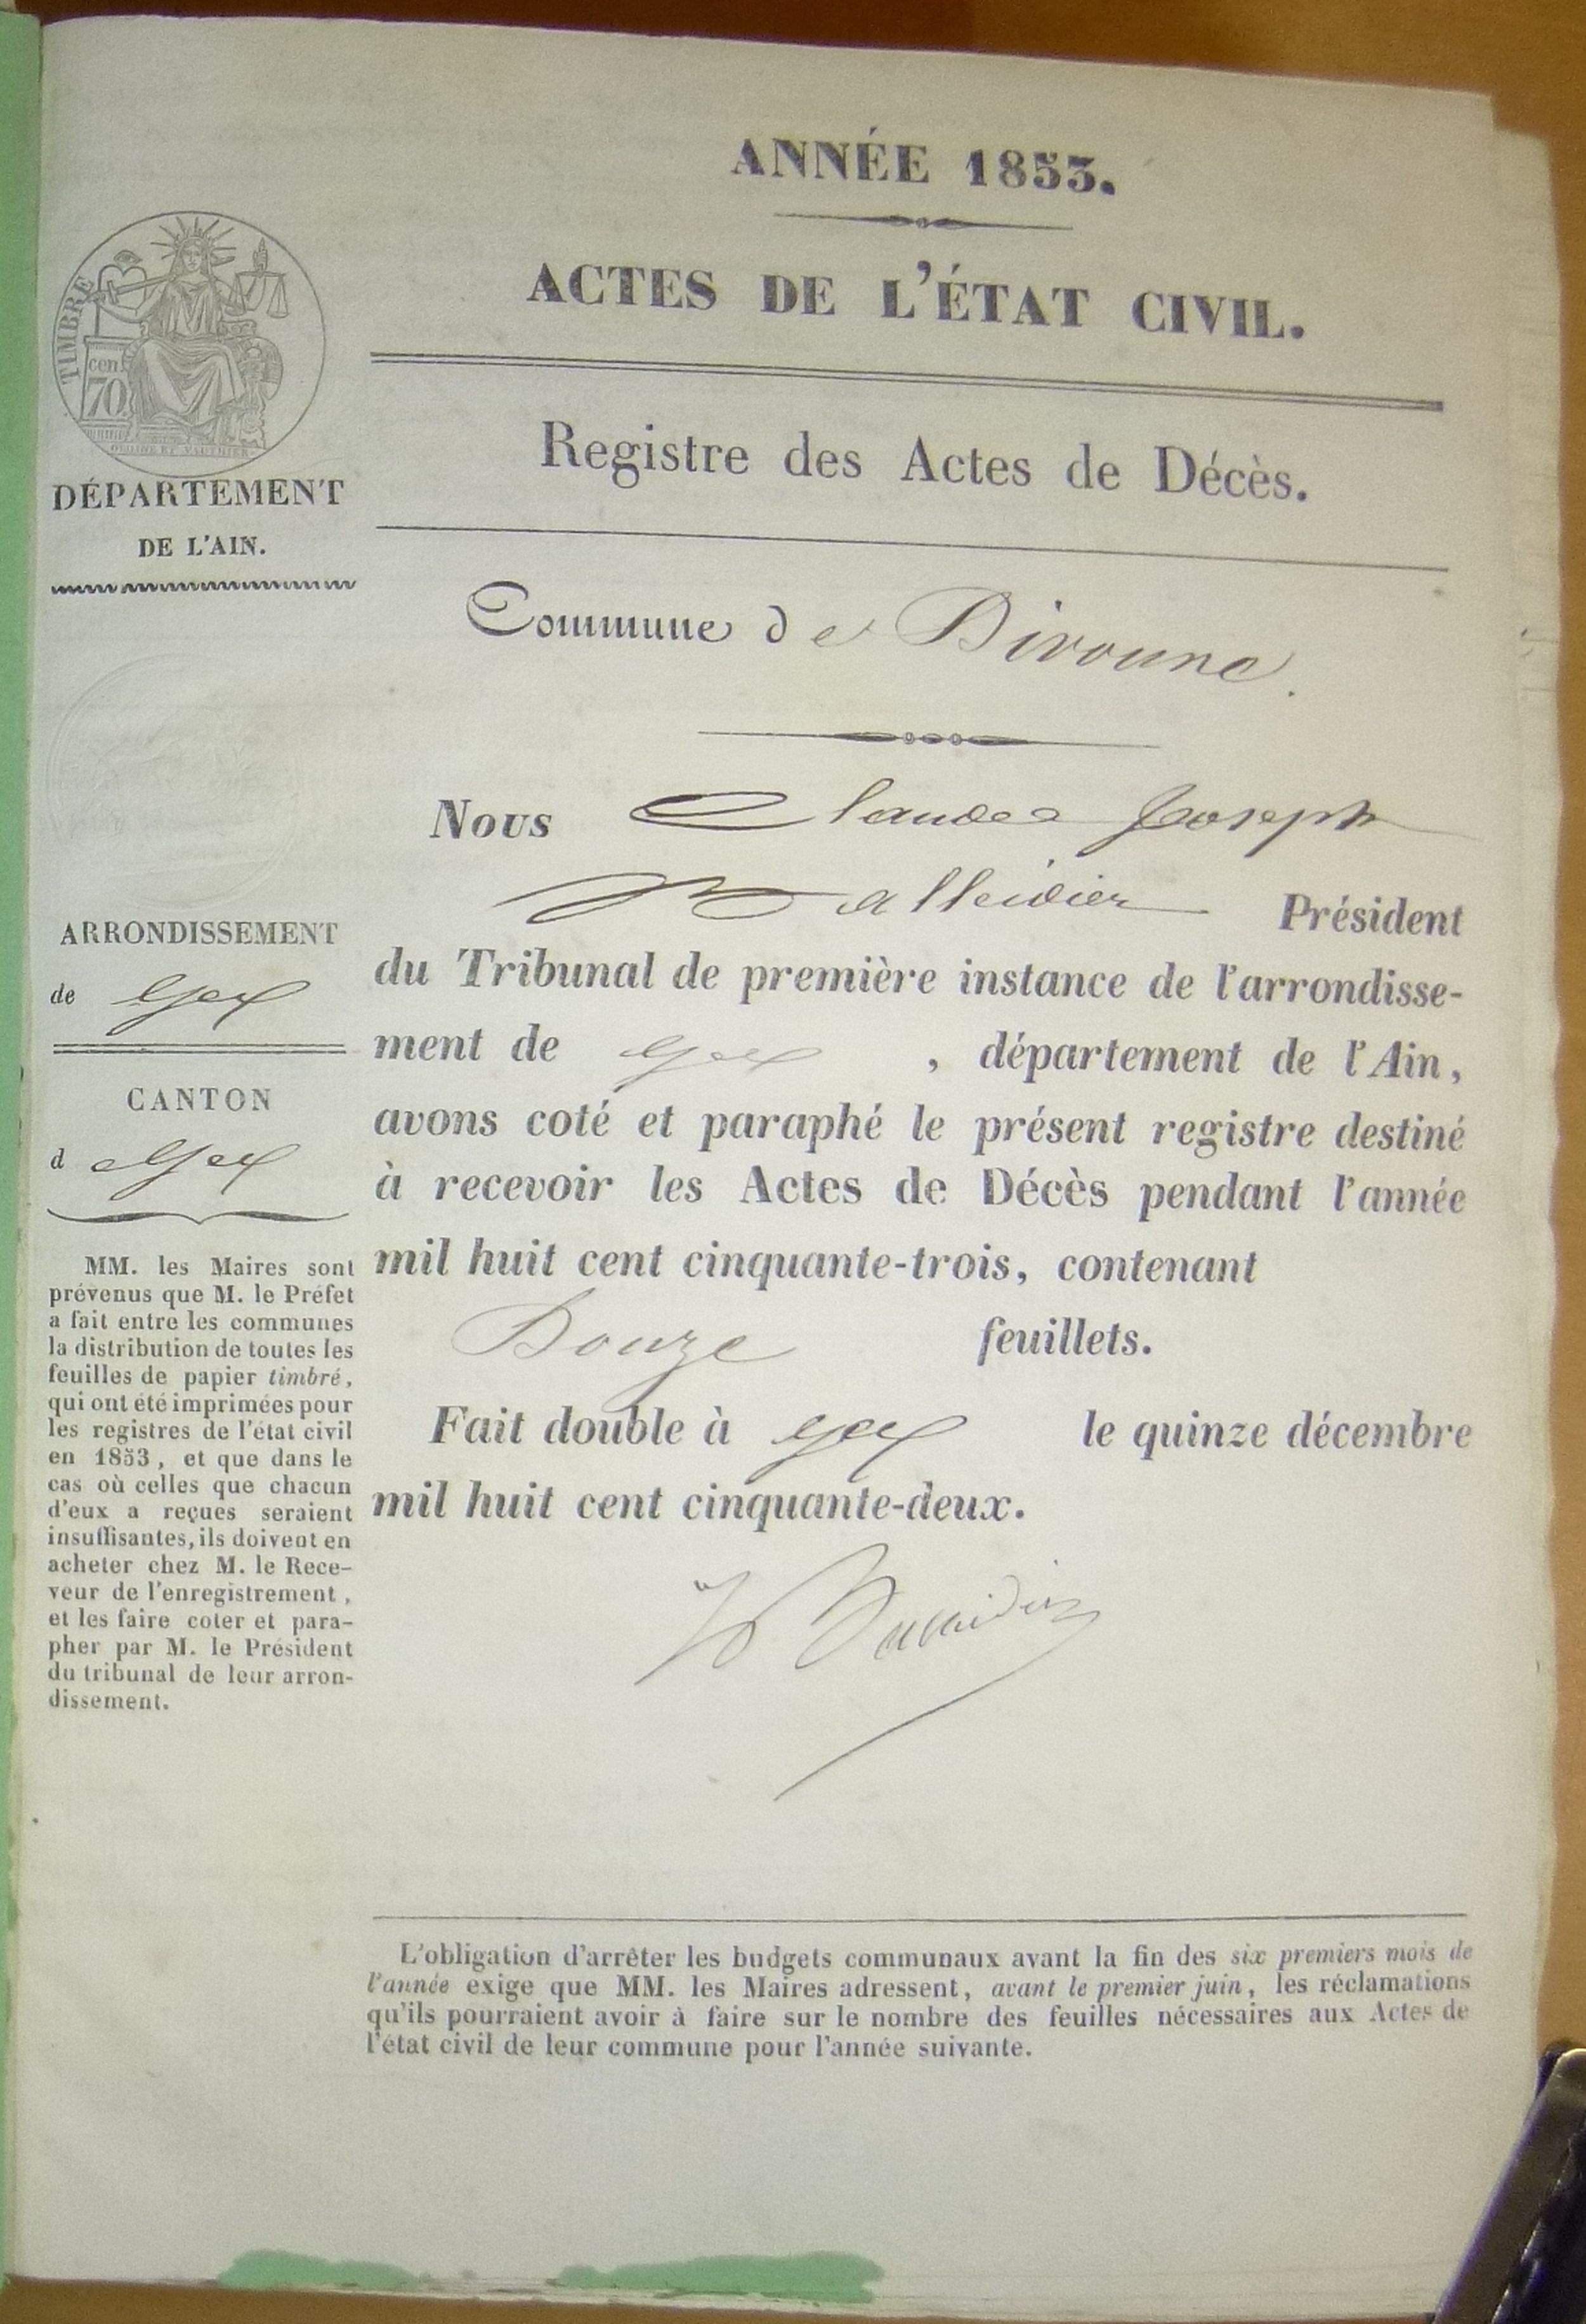 ANNÉE 1853.
ACTES DE L'ÉTAT CIVIL.
Registre des Actes de Décès.
TIMBRE
cen
70
DÉPARTEMENT
DE L'AIN.
Commune de Divonne.
Nous Claude Joseph
Président
du Tribunal de première instance de l'arrondisse-
ment de Gex , département de l'Ain,
avons coté et paraphé le présent registre destiné
à recevoir les Actes de Décès pendant l'année
mil huit cent cinquante-trois, contenant
Douze feuillets.
Fait double à Gex le quinze décembre
mil huit cent cinquante-deux.
ARRONDISSEMENT
de Gex
CANTON
d eGex
MM. les Maires sont
prévenus que M. le Préfet
a fait entre les communes
la distribution de toutes les
feuilles de papier timbré,
qui ont été imprimées pour
les registres de l'état civil
en 1853, et que dans le
cas où celles que chacun
d'eux a reçues seraient
insuffisantes, ils doivent en
acheter chez M. le Rece-
veur de l'enregistrement,
et les faire coter et para-
pher par M. le Président
du tribunal de leur arron-
dissement.
L'obligation d'arrêter les budgets communaux avant la fin des six premiers mois de
l'année exige que MM. les Maires adressent, avant le premier juin, les réclamations
qu'ils pourraient avoir à faire sur le nombre des feuilles nécessaires aux Actes de
l'état civil de leur commune pour l'année suivante.